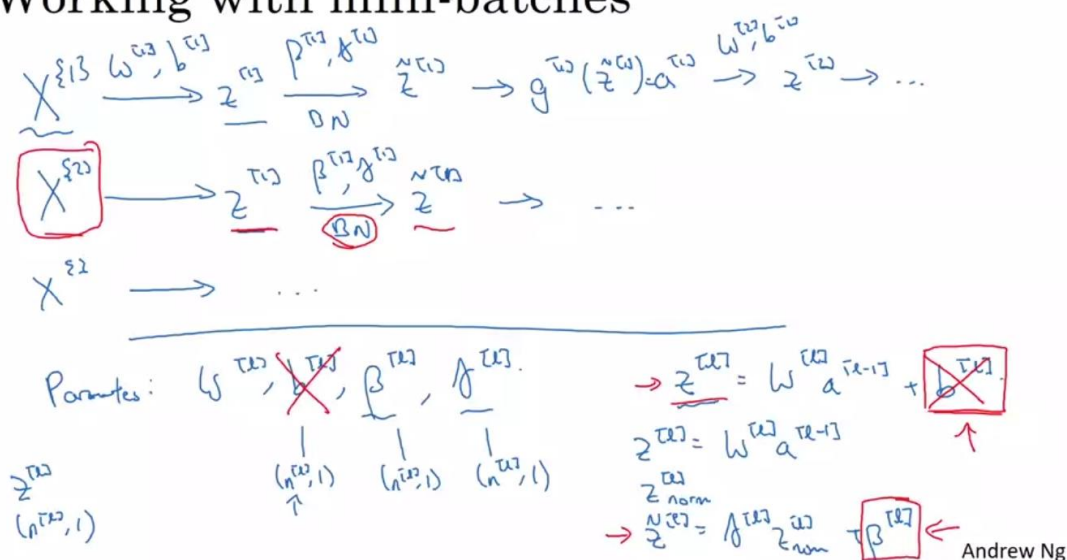 Working with mini-batches
X^{1} W^[1], b^[1] → z^[1] β^[1], γ^[1] BN → z̃^[1] → g^[1](z̃^[1]) = a^[1] W^[2], b^[2] → z^[2] → ...
X^{2} → z^[1] β^[1], γ^[1] BN → z̃^[1] → ...
X^{} → ...
Parameters: W^[l], b^[l], β^[l], γ^[l].
(n^[l], 1) (n^[l], 1) (n^[l], 1)
z^[l]
(n^[l], 1)
→ z^[l] = W^[l] a^[l-1] + b^[l]
z^[l] = W^[l] a^[l-1]
z^[l] norm
→ z̃^[l] = γ^[l] z^[l] norm + β^[l] ←
Andrew Ng